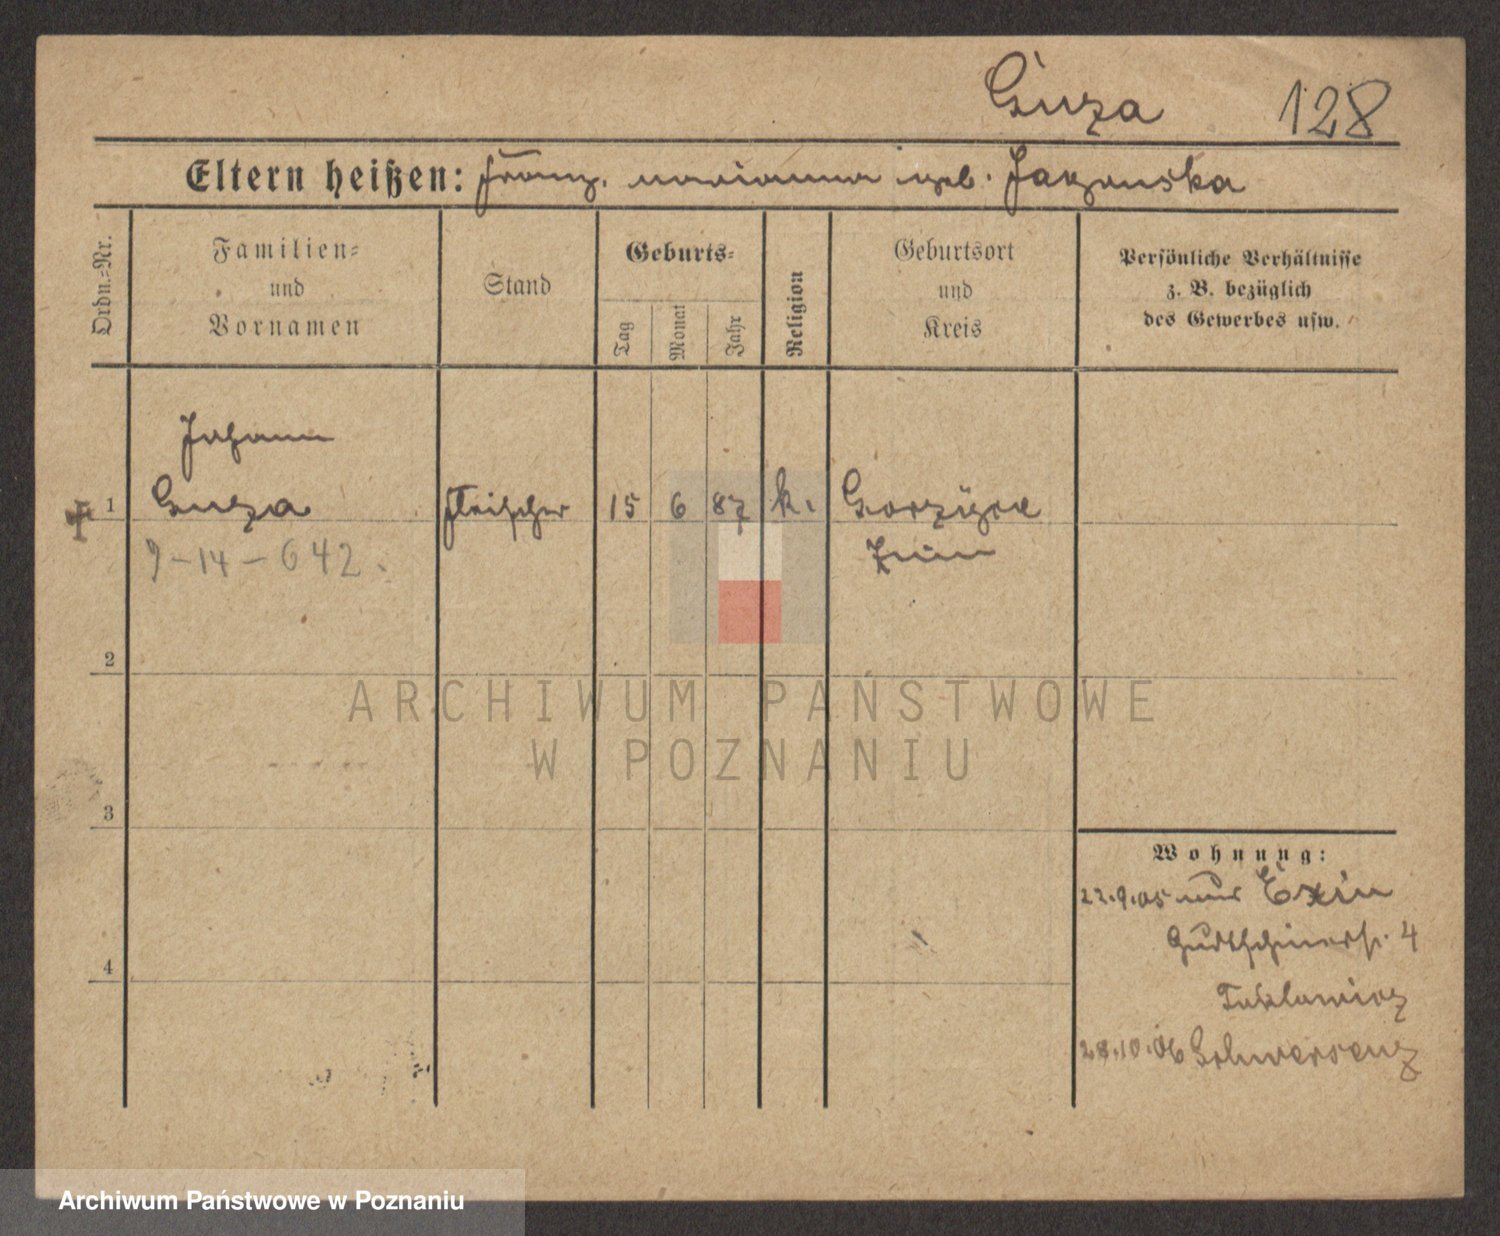 Guza 128
Eltern heißen: Franz, Marianna geb. Jazonska
Ordn.=Nr.
Familien=
und
Vornamen
Stand
Geburts=
Tag
Monat
Jahr
Religion
Geburtsort
und
Kreis
Persönliche Verhältnisse
z. B. bezüglich
des Gewerbes usw.
Johann
1 Guza Fleischer 15 6 87 k.
9-14-642.
Znin
2
ARCHIWUM PAŃSTWOWE
W POZNANIU
3
Wohnung:
22.9.05 aus Exin
4
4
28.10.06 Schwersenz
Archiwum Państwowe w Poznaniu